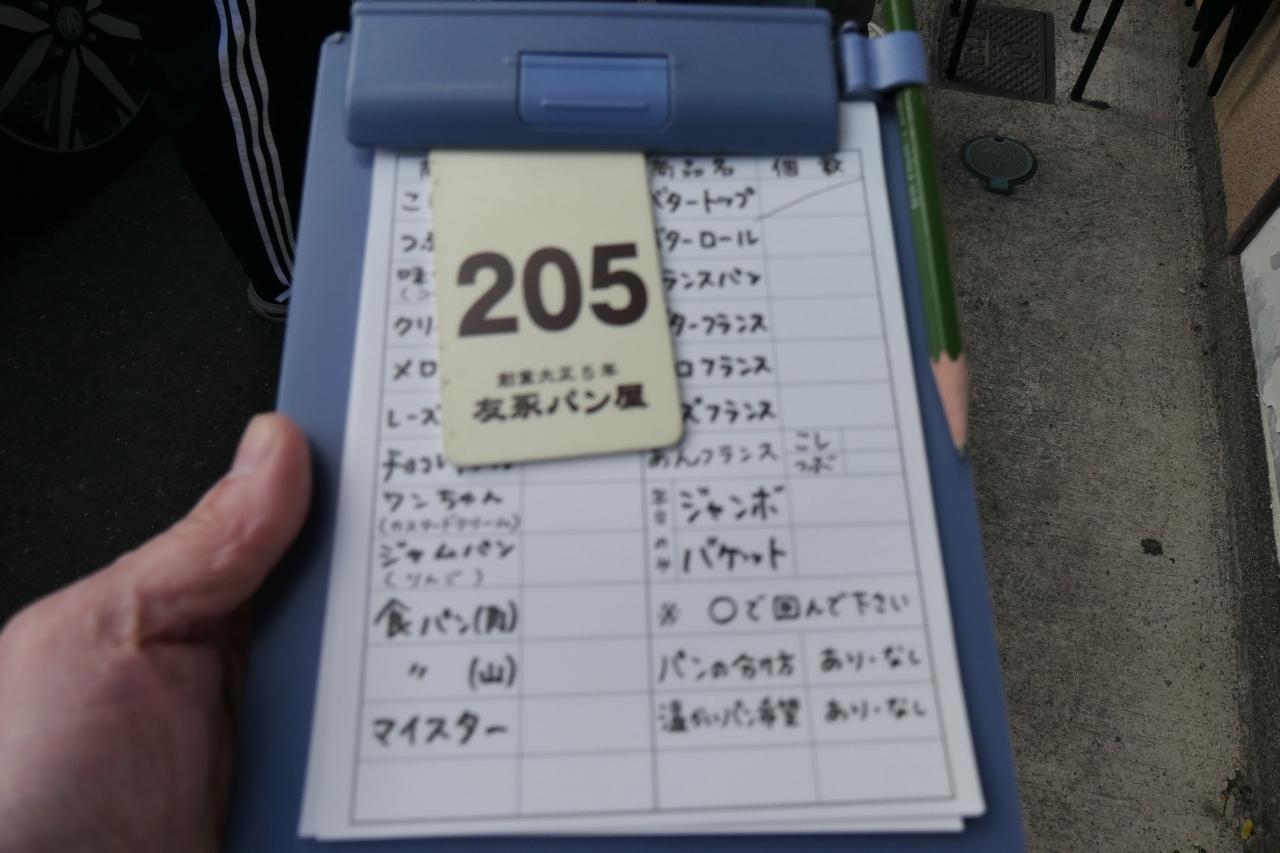 商品名 個数
こ
バタートップ
つぶ
バターロール
味
ランスパン
クリ
ターフランス
メロ
ロフランス
レーズ
ズフランス
205
創業大正5年
友永パン屋
チョコレ
あんフランス こし
つぶ
ワンちゃん
(カスタードクリーム)
ジャンボ
ジャムパン
(りんご)
バケット
食パン(角)
※ ○で囲んで下さい
〃 (山)
パンの分け方 あり・なし
マイスター
温かいパン希望 あり・なし